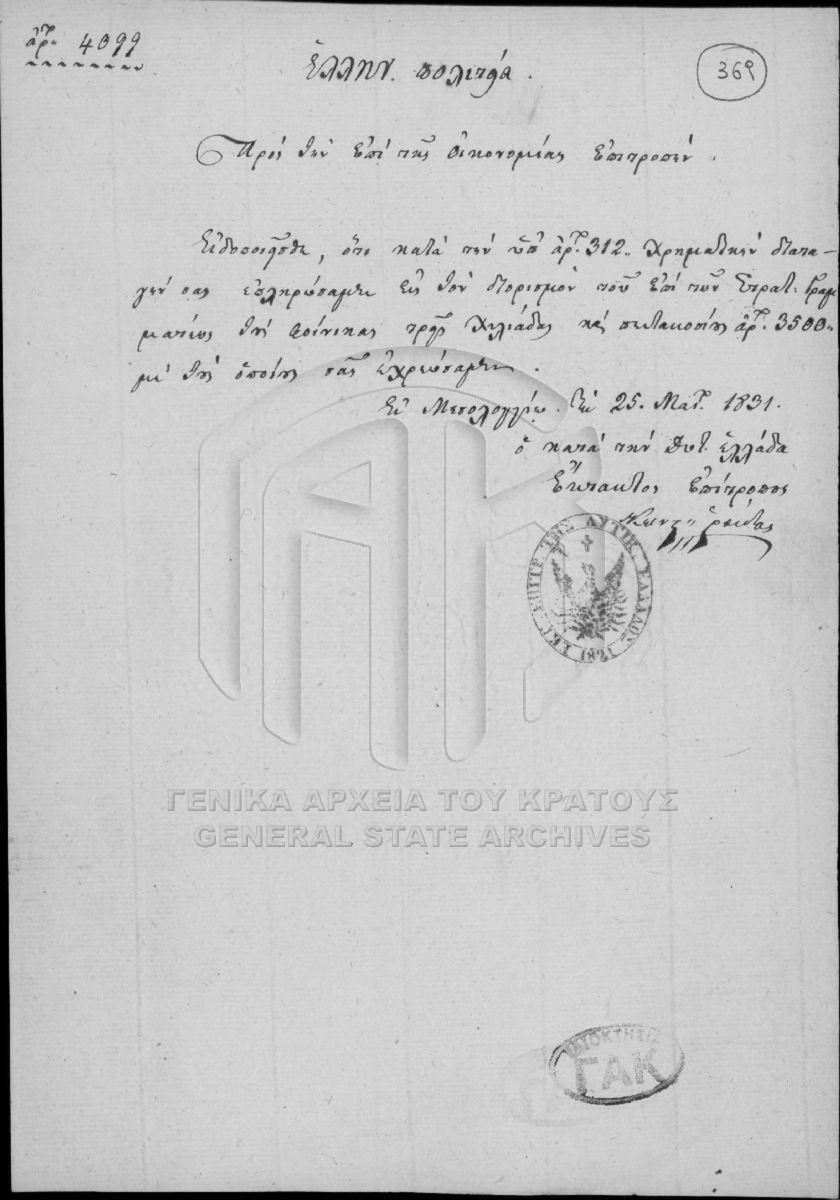 ἀρ: 4099
369
Ἑλλην. Πολιτεία.
Πρὸς τὴν ἐπὶ τῆς Οἰκονομίας Ἐπιτροπήν.
Εἰδοποιεῖσθε, ὅτι κατὰ τὴν ὑπ' ἀρ. 312. χρηματικὴν διατα-
γήν σας ἐπληρώσαμεν εἰς τὸν διορισμὸν τοῦ ἐπὶ τῶν Στρατ. Γραμ
ματέως τοὺς φοίνικας τρεῖς χιλιάδας καὶ πεντακοσίους ἀρ. 3500.
μὲ τοὺς ὁποίους σᾶς ἐχρεώσαμεν.
Ἐν Μεσολογγίῳ. τῇ 25. Μαΐ. 1831.
ὁ κατὰ τὴν Δυτ. Ἑλλάδα
Ἔκτακτος Ἐπίτροπος
ΕΚΤ. ΕΠΙΤΡ. ΤΗΣ ΔΥΤΙΚ. ΕΛΛΑΔΟΣ
ΓΕΝΙΚΑ ΑΡΧΕΙΑ ΤΟΥ ΚΡΑΤΟΥΣ
GENERAL STATE ARCHIVES
ΙΔΙΟΚΤΗΣΙΑ
ΓΑΚ